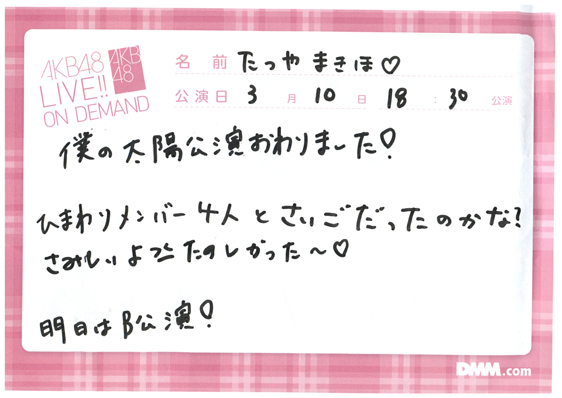 AKB48
LIVE!!
ON DEMAND
AKB
48
名前 たつやまきほ♡
公演日 3月10日 18:30公演
僕の太陽公演おわりました!
ひまわりメンバー4人とさいごだったのかな?
たのしかった〜♡
明日はB公演!
DMM.com